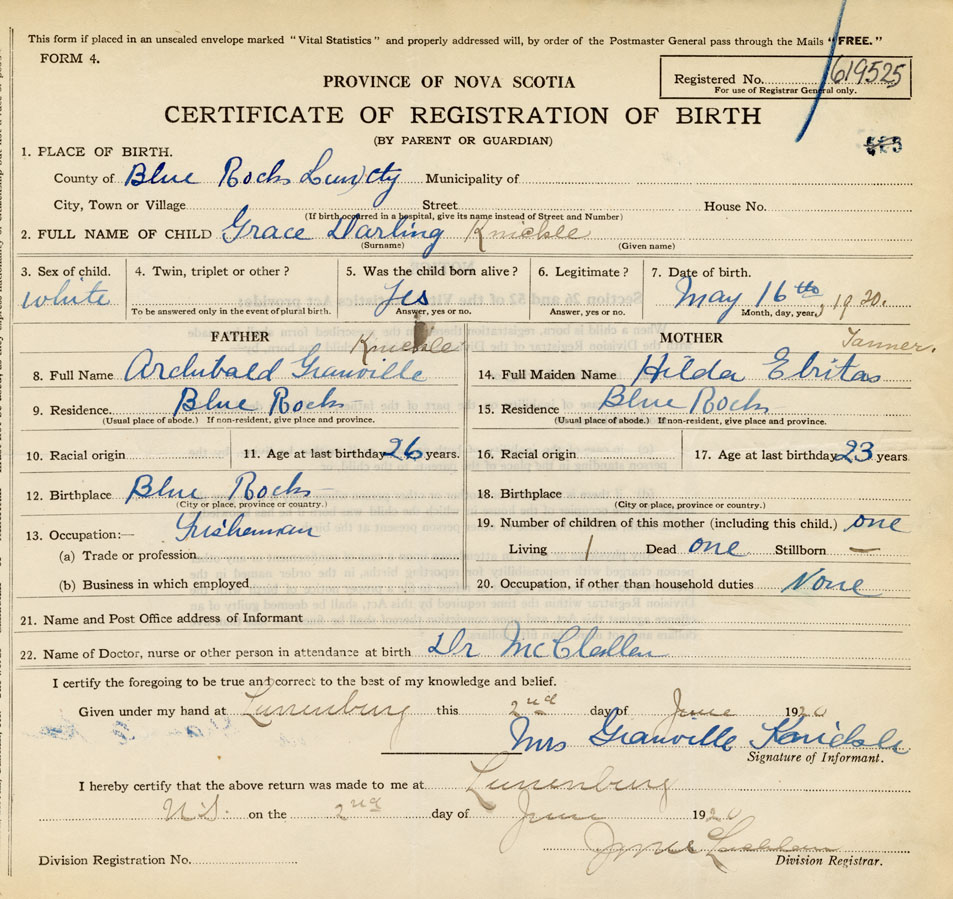 This form if placed in an unsealed envelope marked "Vital Statistics" and properly addressed will, by order of the Postmaster General pass through the Mails "FREE."
FORM 4.
PROVINCE OF NOVA SCOTIA
Registered No. 619525
For use of Registrar General only.
CERTIFICATE OF REGISTRATION OF BIRTH
(BY PARENT OR GUARDIAN)
1. PLACE OF BIRTH.
County of Blue Rocks Lun cty Municipality of
City, Town or Village Street House No.
(If birth occurred in a hospital, give its name instead of Street and Number)
2. FULL NAME OF CHILD Grace Darling Knickle
(Surname) (Given name)
3. Sex of child. 4. Twin, triplet or other? 5. Was the child born alive? 6. Legitimate? 7. Date of birth.
white Yes May 16th, 1920.
To be answered only in the event of plural birth. Answer, yes or no. Answer, yes or no. Month, day, year,
FATHER MOTHER
Knickle Tanner.
8. Full Name Archibald Granville 14. Full Maiden Name Hilda
9. Residence. Blue Rocks 15. Residence Blue Rocks
(Usual place of abode.) If non-resident, give place and province. (Usual place of abode.) If non-resident, give place and province.
10. Racial origin 11. Age at last birthday 26 years. 16. Racial origin 17. Age at last birthday 23 years.
12. Birthplace Blue Rocks 18. Birthplace
(City or place, province or country.) (City or place, province or country.)
13. Occupation:— Frisherman 19. Number of children of this mother (including this child.) one
(a) Trade or profession Living 1 Dead one Stillborn —
(b) Business in which employed 20. Occupation, if other than household duties None
21. Name and Post Office address of Informant
22. Name of Doctor, nurse or other person in attendance at birth Dr
I certify the foregoing to be true and correct to the best of my knowledge and belief.
Given under my hand at Lunenburg this 2nd day of June 1920
Mrs Granville Knickle
Signature of Informant.
I hereby certify that the above return was made to me at Lunenburg
N.S. on the 2nd day of June 1920
Division Registration No. Division Registrar.